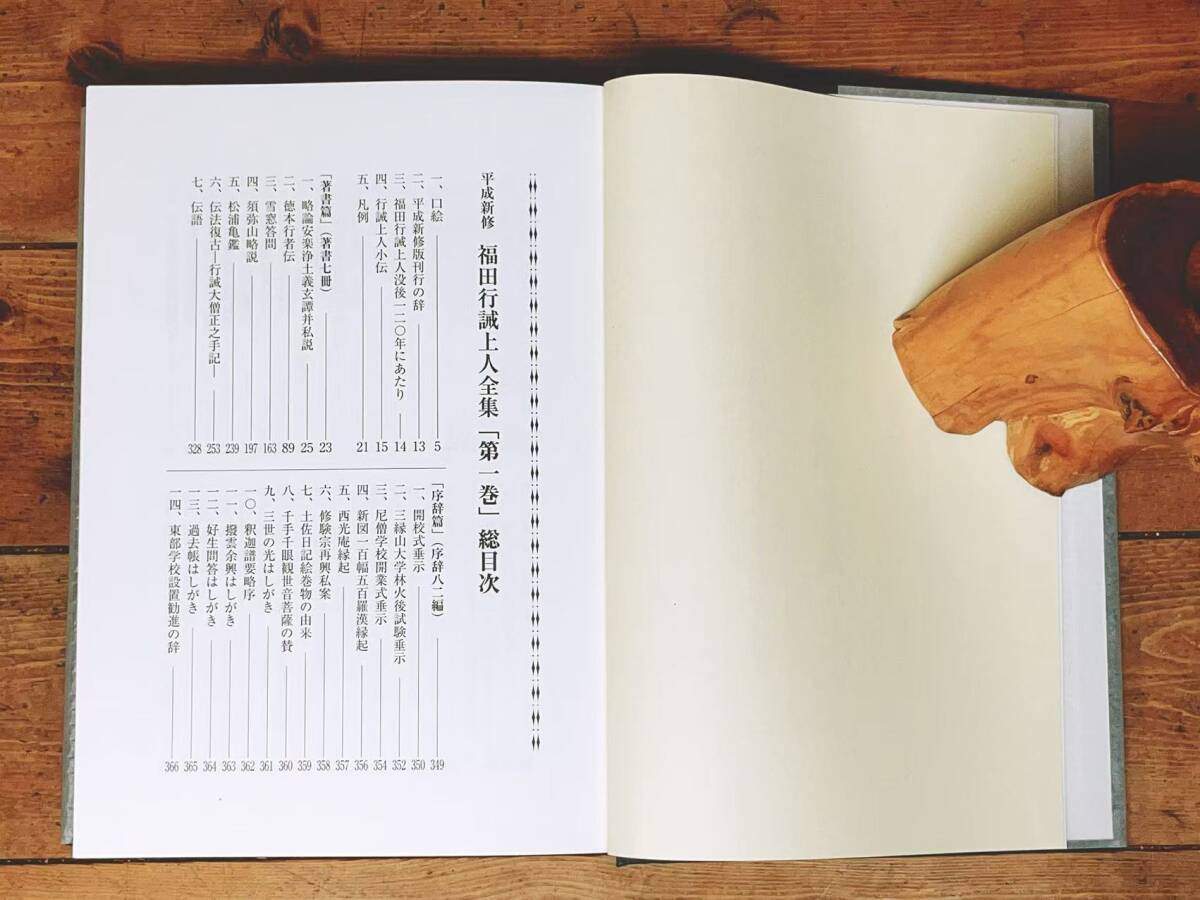 平成新修 福田行誡上人全集「第一巻」総目次
一、口絵 5
二、平成新修版刊行の辞 13
三、福田行誡上人没後一二〇年にあたり 14
四、行誡上人小伝 15
五、凡例 21
「著書篇」（著書七冊） 23
一、略論安楽浄土義玄譚并私説 25
二、徳本行者伝 89
三、雪窓答問 163
四、須弥山略説 197
五、松浦亀鑑 239
六、伝法復古―行誡大僧正之手記― 253
七、伝語 328
「序辞篇」（序辞八二編） 349
一、開校式垂示 350
二、三縁山大学林火後試験垂示 352
三、尼僧学校開業式垂示 354
四、新図一百幅五百羅漢縁起 356
五、西光庵縁起 357
六、修験宗再興私案 358
七、土佐日記絵巻物の由来 359
八、千手千眼観世音菩薩の賛 360
九、三世の光はしがき 361
一〇、釈迦譜要略序 362
一一、撥雲余興はしがき 363
一二、好生問答はしがき 364
一三、過去帳はしがき 365
一四、東部学校設置勧進の辞 366